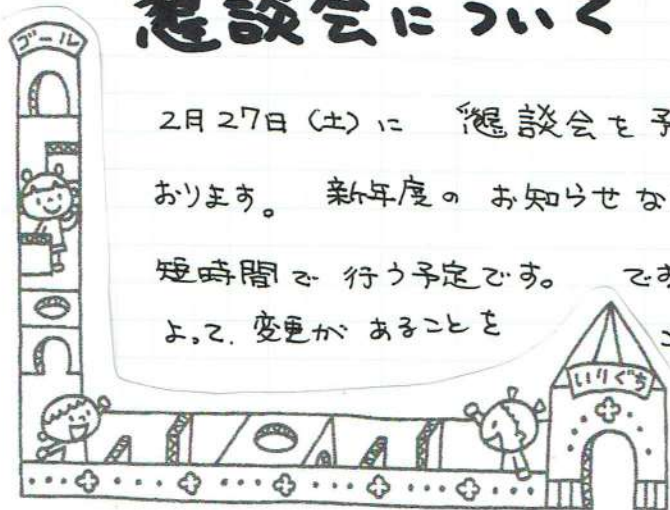 懇談会について
ゴール
2月27日(土)に 懇談会を予
おります。 新年度の お知らせな
短時間で 行う予定です。 です
よって、変更が あることを こ
いりぐち